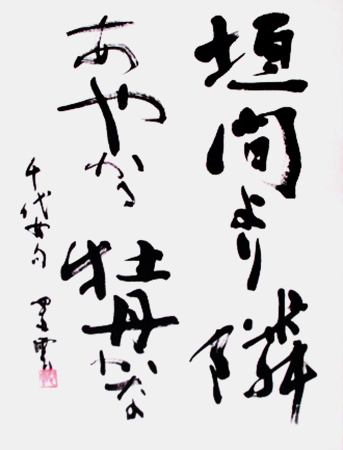 垣間より隣
あやかる牡丹かな
千代女句